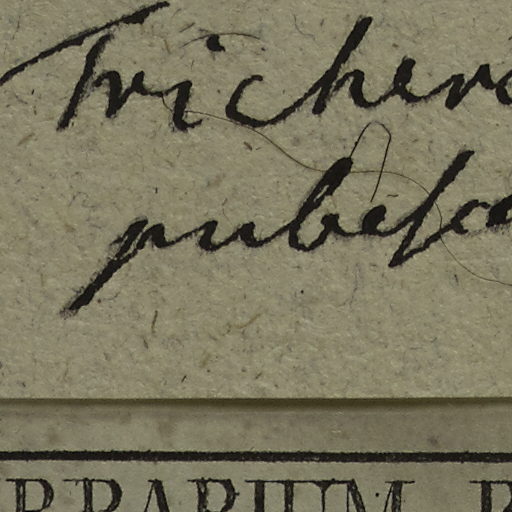 Trichero
pubeſce
RBARIUM R